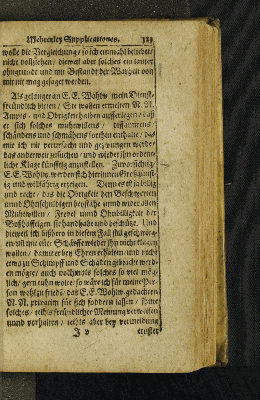 Mehrerley Supplicationes. 121
wolle die Vergleichung / so ich einmahl beliebet /
nicht vollziehen / dieweil aber solches ein lauter
ohngrundt und mit Bestandt der Warheit von
mir nie mag gesaget werden.
Als gelanget an E. E. Wohlw. mein Dienst-
freundlich bitten / Sie wollen ermelten N. N.
Ampts- und Obrigkeit halben aufferlegen / daß
er sich solches muhtwilliens / diffamirens /
schändens und schmähens forthin enthalte / da-
mit ich nit verursacht und gezwungen werde
das ander weit zusuchen / und wieder ihn ordent-
liche Klage künfftig anzustellen. Zuversichtig /
E. E. Wohlw. werden sich hierinnen Großgünsti-
ig und willfährig erzeigen. Denn es ist ja billig
und recht / das die Obrigkeit den Beschwerten
und Ohnschuldigen beystähe und wider allen
Muhtwillen / Frevel und Ohnbilligkeit der
Boßhafftigen sie handhabe und beschütze. Und
dieweil ich bißhero in diesem Fall still geschwieg-
en / mit der Schärffe wieder ihn nicht klagen
wollen / damit er bey Ehren erhalten und nicht
etwa zu Schimpff und Schaden gebracht werd-
en mögte / auch nochmals solches so viel mög-
lich / gern tuhn wolte / so wäre ich für meine Per-
son wohl zu friedt / das E. E. Wohlw. gedachten
N. N. privatim für sich foddern lassen / ihme
solches / mit freundlicher Meinung verweisen
und vorhalten / mit aber bey vermeidung
J v ernster